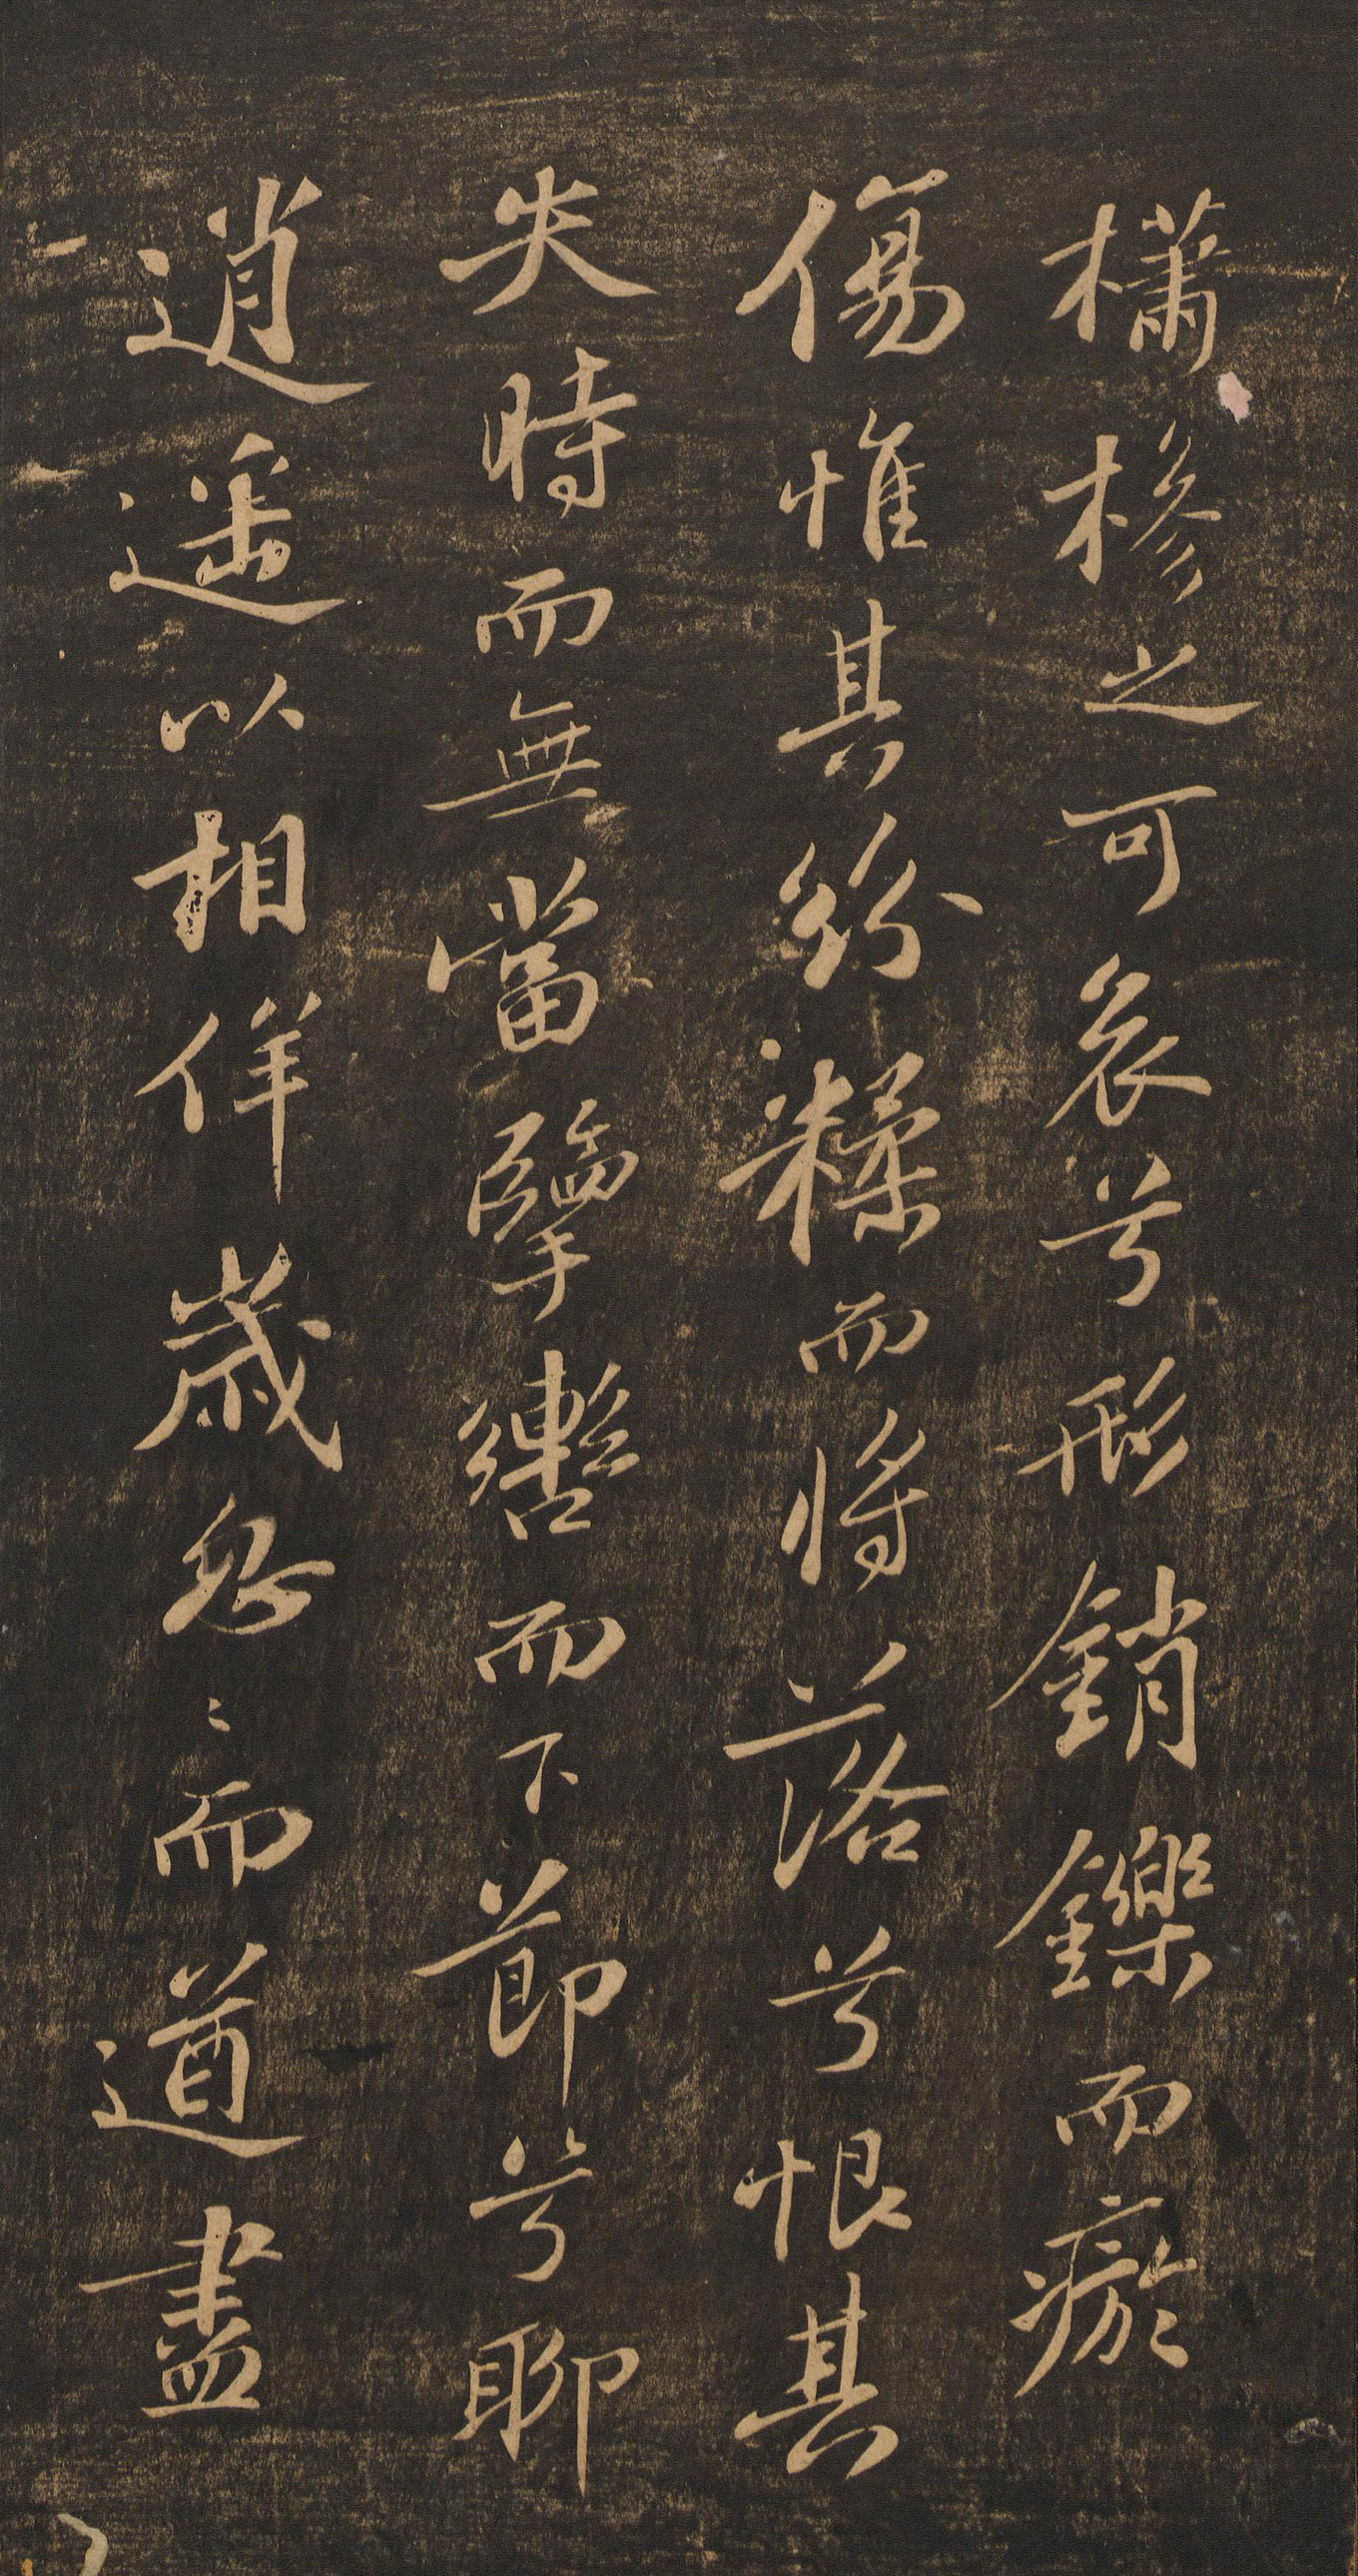 櫹槮之可哀兮形銷鑠而瘀
傷惟其紛糅而將落兮恨其
失時而無當擥轡而下節兮聊
逍遙以相佯歲忽〻而遒盡